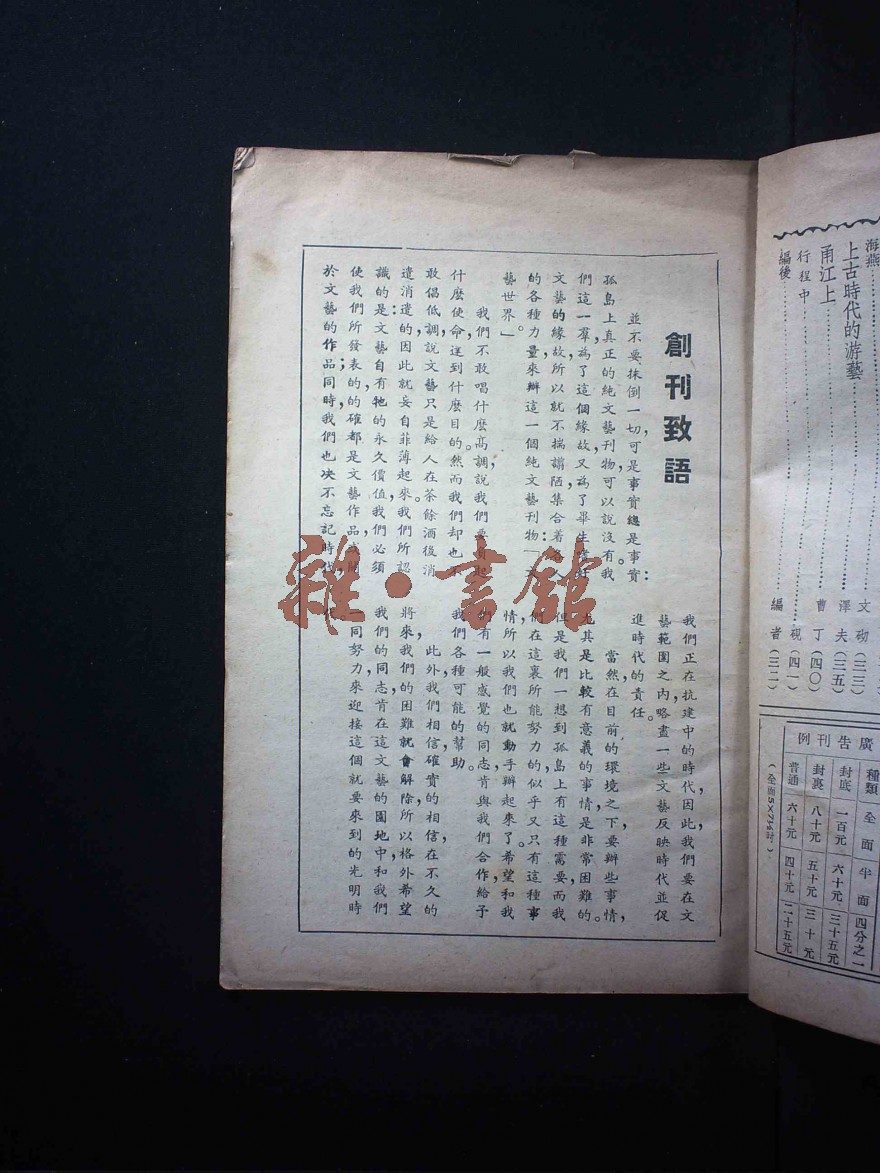 創刊致語
並不要抹倒一切,可是事實總是事實:
孤島上真正的純文藝刊物,可以說沒有。我
們這一羣,為了這個緣故,又為了畢生嗜好
文藝的緣故,所以就不揣譾陋,集合着各
的各種力量來辦這一個純文藝刊物「
藝世界」。
我們不敢唱什麼高調,說我們要負起
什麼使命,達到什麼目的。然而我們却也不
敢倡低調,說文藝只是給人在茶餘酒後消
遣消遣的,因此就妄自菲薄起來。我們所認
識的是:文藝自有牠的永久價值,我們必須
使我們所發表的,的確都是文藝作品或關
於文藝的作品;同時,我們也决不忘記時代,
我們正在抗建中的時代,因此,我們要在文
藝範圍之內,略盡一些文藝反映時代並促
進時代的責任。
當然在目前的環境之下,要辦些事情,
尤其是比較有意義的事情,是非常困難的。
但是我們一想到孤島上有這種需要,而我
們在這裏所能努力的,似乎又只有這種事
情,所以我們也就動手辦起來了。希望和我
們有一般感覺的同志,肯與我們合作,給予
我們各種可能的幫助。
此外,我們相信,確實的相信,在不久的
將來,我們的困難就會解除,所以格外希望
我們的同志,肯在這文藝的園地中,和我們
一同努力,來迎接這個就要來到的光明時
雜·書舘
海燕
上古時代的游藝
文砌(三三)
甬江上
澤夫(三五)
行程中
曹丁(四〇)
硯(四一)
編後
編者(三二)
廣告刊例
種類 全面 半面 四分之一
封底 一百元 六十元 三十五元
封裏 八十元 五十元 三十元
普通 六十元 四十元 二十五元